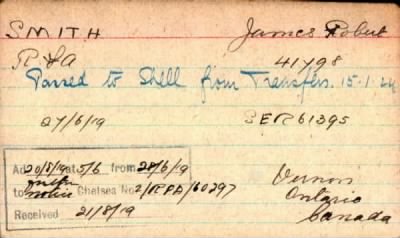 SMITH James Robert
RFA 41798
Passed to Shell from Transfers. 15.1.24
27/6/19 SER 61395
Ad 20/5/19 at 5/6 from 28/6/19
to Chelsea No 2/RFA/60297
Received 21/8/19
Vernon
Ontario
Canada